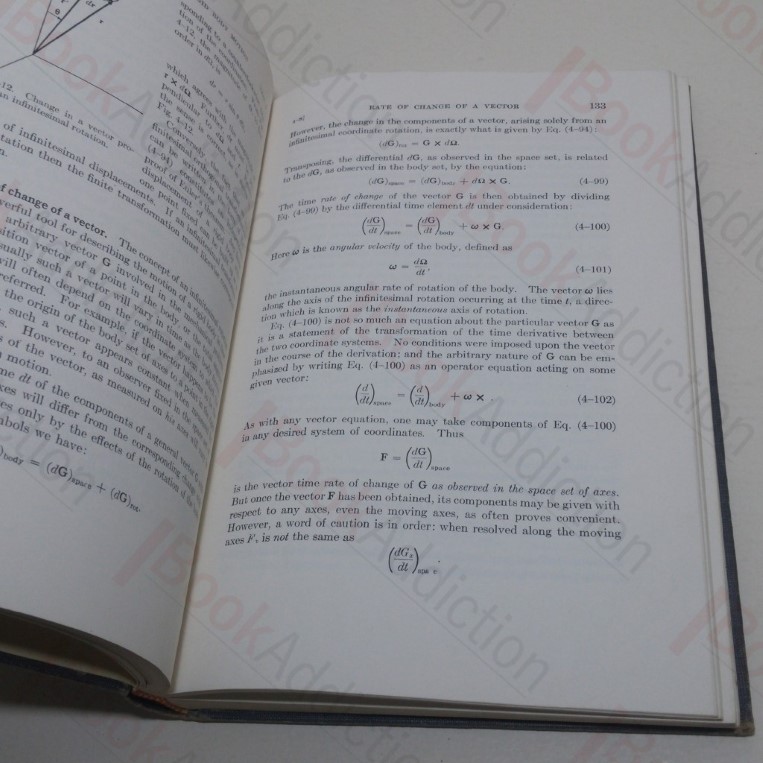 12. Change in a vector pro-
an infinitesimal rotation.
of infinitesimal displacements. If an infinitesimal
rotation then the finite transformation must likewise
of change of a vector. The concept of an infinitesimal
powerful tool for describing the motion of a rigid
arbitrary vector G involved in the mechanical
position vector of a point in the body, or the
usually such a vector will vary in time as the
will often depend on the coordinate system
referred. For example, if the vector happens
the origin of the body set of axes to a point
such a vector appears constant when measured
However, to an observer fixed in the space
of the vector, as measured on his axes, will vary
motion.
time dt of the components of a general vector G
axes will differ from the corresponding change
axes only by the effects of the rotation of the
symbols we have:
)body = (dG)space + (dG)rot.
which agrees with the
r × dΩ
RATE OF CHANGE OF A VECTOR 133
4–8]
However, the change in the components of a vector, arising solely from an
infinitesimal coordinate rotation, is exactly what is given by Eq. (4–94):
(dG)rot = G × dΩ.
Transposing, the differential dG, as observed in the space set, is related
to the dG, as observed in the body set, by the equation:
(dG)space = (dG)body + dΩ × G. (4–99)
The time rate of change of the vector G is then obtained by dividing
Eq. (4–99) by the differential time element dt under consideration:
(dG/dt)space = (dG/dt)body + ω × G. (4–100)
Here ω is the angular velocity of the body, defined as
ω = dΩ/dt, (4–101)
the instantaneous angular rate of rotation of the body. The vector ω lies
along the axis of the infinitesimal rotation occurring at the time t, a direc-
tion which is known as the instantaneous axis of rotation.
Eq. (4–100) is not so much an equation about the particular vector G as
it is a statement of the transformation of the time derivative between
the two coordinate systems. No conditions were imposed upon the vector
in the course of the derivation; and the arbitrary nature of G can be em-
phasized by writing Eq. (4–100) as an operator equation acting on some
given vector:
(d/dt)space = (d/dt)body + ω × (4–102)
As with any vector equation, one may take components of Eq. (4–100)
in any desired system of coordinates. Thus
F = (dG/dt)space
is the vector time rate of change of G as observed in the space set of axes.
But once the vector F has been obtained, its components may be given with
respect to any axes, even the moving axes, as often proves convenient.
However, a word of caution is in order: when resolved along the moving
axes Fₓ is not the same as
(dGₓ/dt)space.
BookAddiction